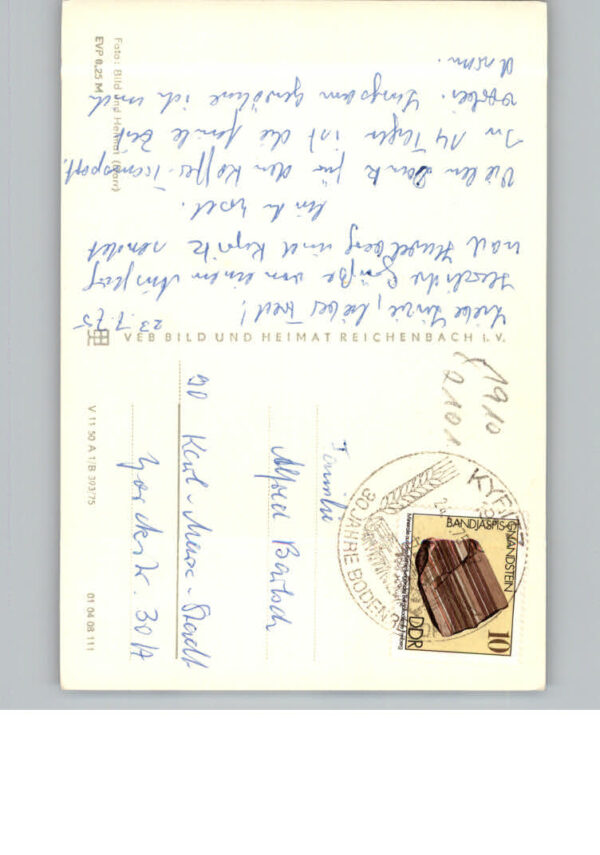 23.7.75
Liebe Luzie, lieber Fred!
Herzliche Grüße von einem Ausflug
nach Havelberg und Kyritz sendet
Euch
Vielen Dank für den Koffer-Transport.
In 14 Tagen ist die schöne Zeit
vorbei. Langsam gewöhne ich mich
daran.
Foto: Bild und Heimat (Darr)
EVP 0,25 M
VEB BILD UND HEIMAT REICHENBACH I. V.
V 11 50 A 1/B 393/75
01 04 08 111
Familie
Alfred Bartsch
90 Karl-Marx-Stadt
Yorckstr. 30/A
1910
2101
KYRITZ
30 JAHRE BODEN
BANDJASPIS GNANDSTEIN
DDR
10